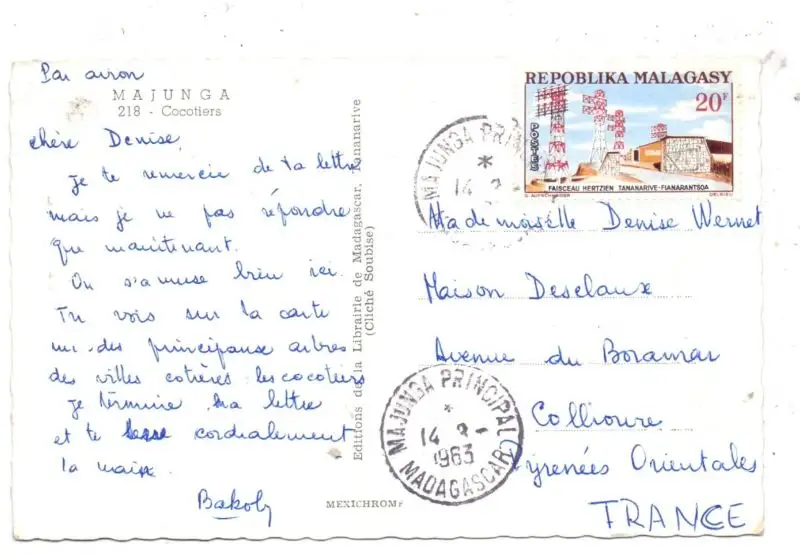 Par avion
MAJUNGA
218 - Cocotiers
chère Denise
Je te remercie de ta lettre
mais je ne pas répondre
que maintenant.
On s'amuse bien ici.
Tu vois sur la carte
un des principaux arbres
des villes cotières les cocotiers
Je termine ma lettre
et te serre cordialement
la main.
Bakoly
MEXICHROME
Editions de la Librairie de Madagascar, Tananarive
(Cliché Soubise)
REPOBLIKA MALAGASY
20F
FAISCEAU HERTZIEN TANANARIVE-FIANARANTSOA
MAJUNGA PRIN
14
Mademoiselle Denise Wernet
Maison Desclaux
Avenue du Boramar
Collioure
Pyrenées Orientales
FRANCE
MAJUNGA PRINCIPAL
14
1963
MADAGASCAR